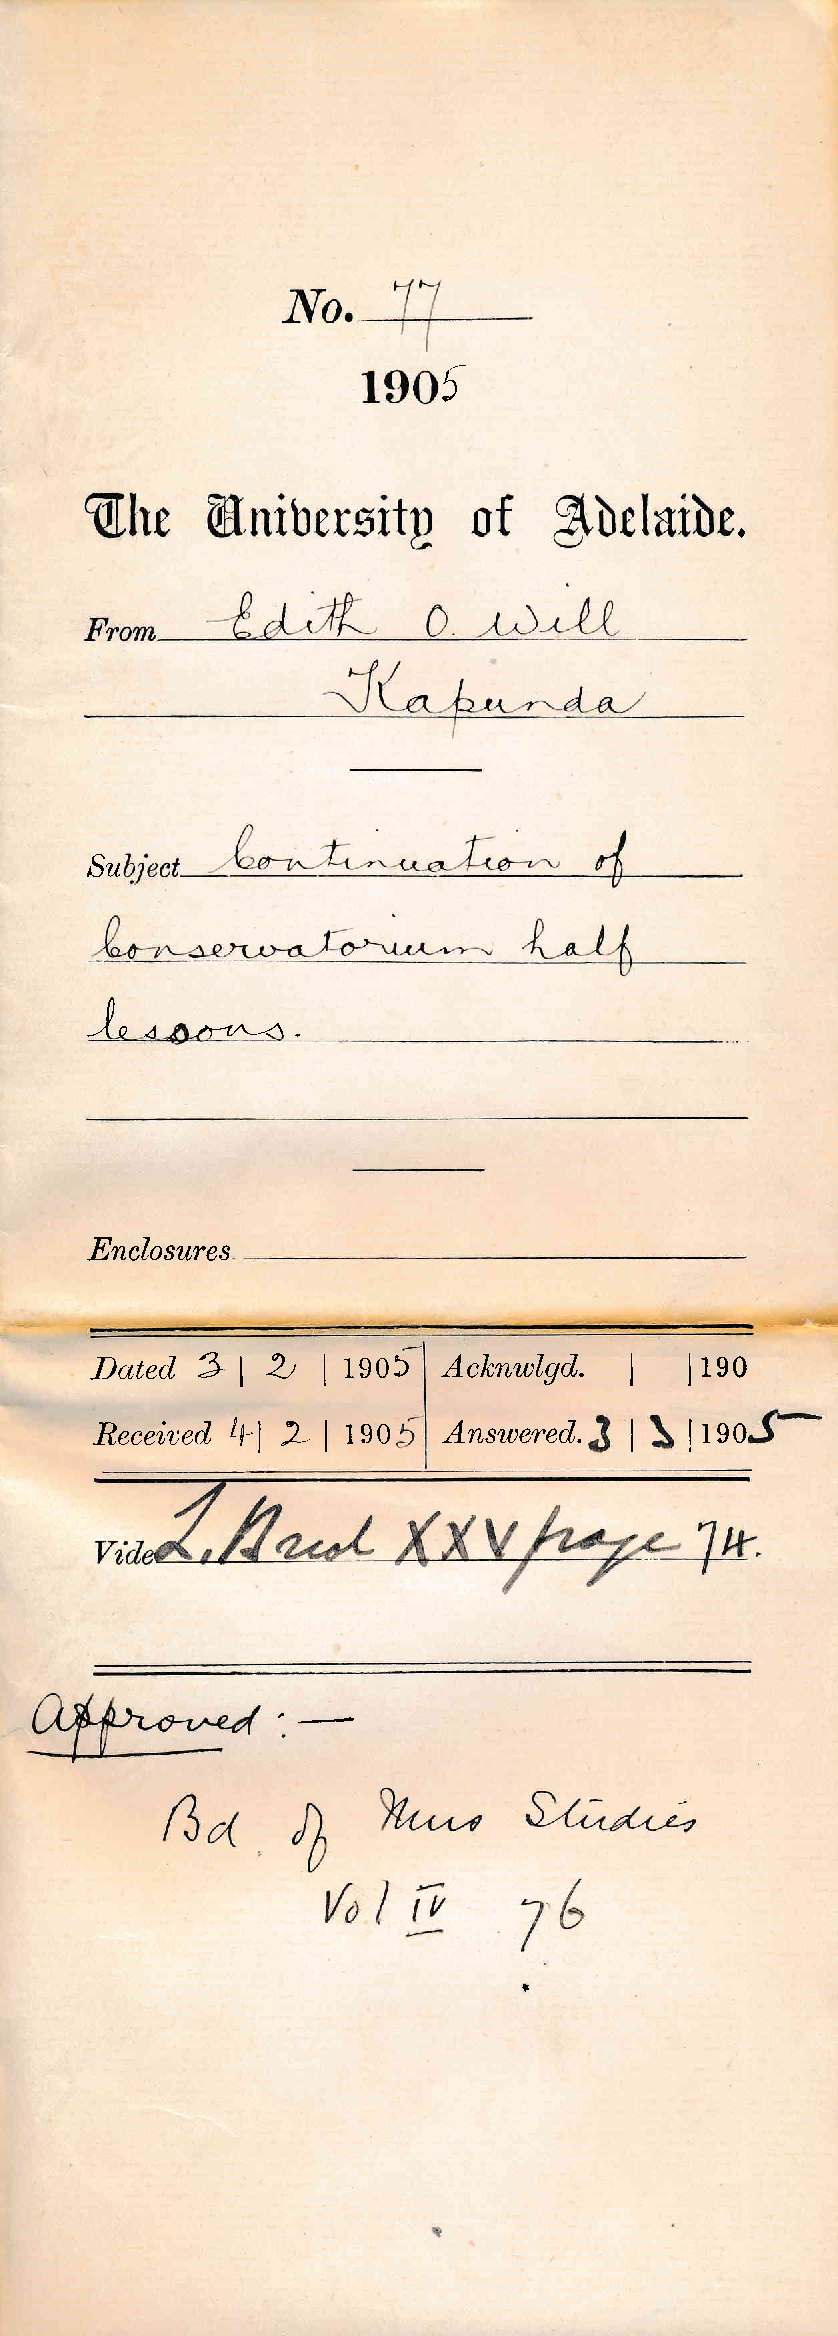 No. 77
1905
The University of Adelaide.
From Edith O. Will
Kapunda
Subject Continuation of
Conservatorium half
lessons.
Enclosures
Dated 3 | 2 | 1905 Acknwlgd. | | 190
Received 4 | 2 | 1905 Answered. 3 | 3 | 1905
Vide L. XXV page 74.
Approved :—
Bd. of Mus Studies
Vol IV 76